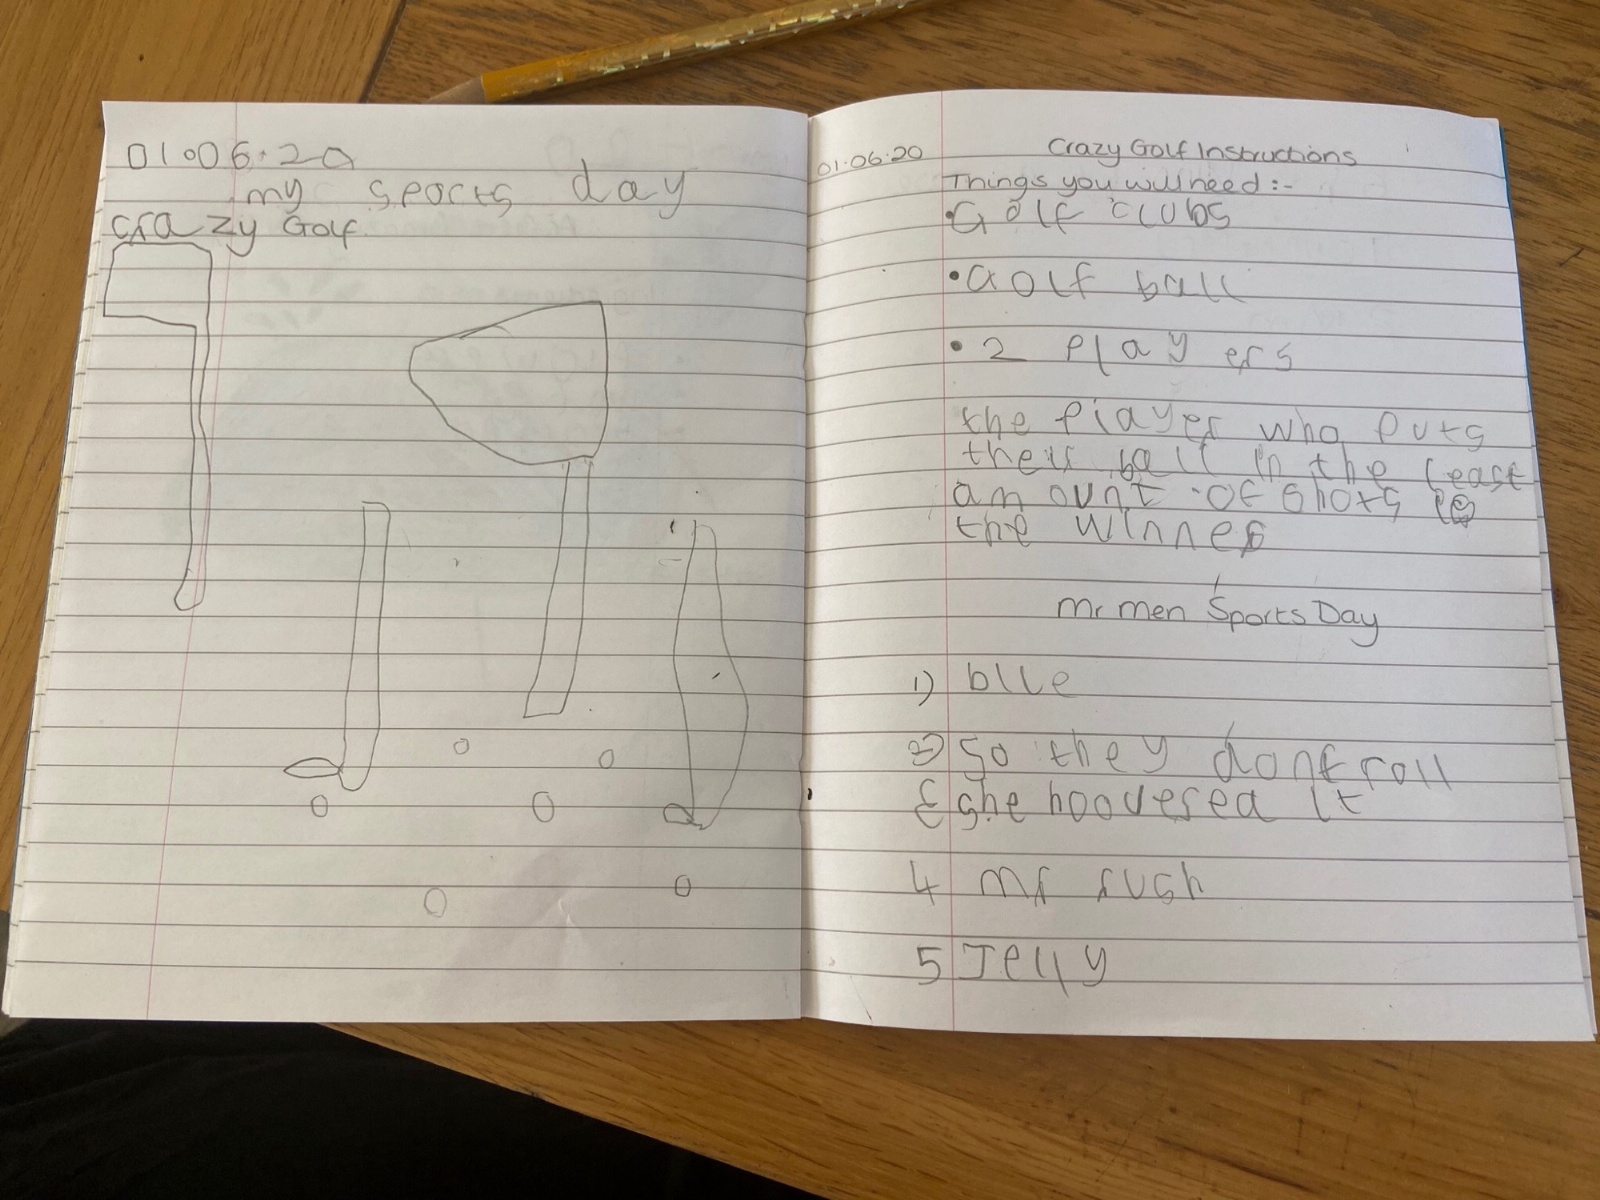 01.06.20
my sports day
crazy Golf
01.06.20
Crazy Golf Instructions
Things you will need :-
• Golf clubs
• Golf ball
• 2 players
the player who puts
their ball in the least
amount of shots is
the winner
Mr men Sports Day
1) blle
2) so they dont roll
3 she hoovered it
4 mr rush
5 Jelly